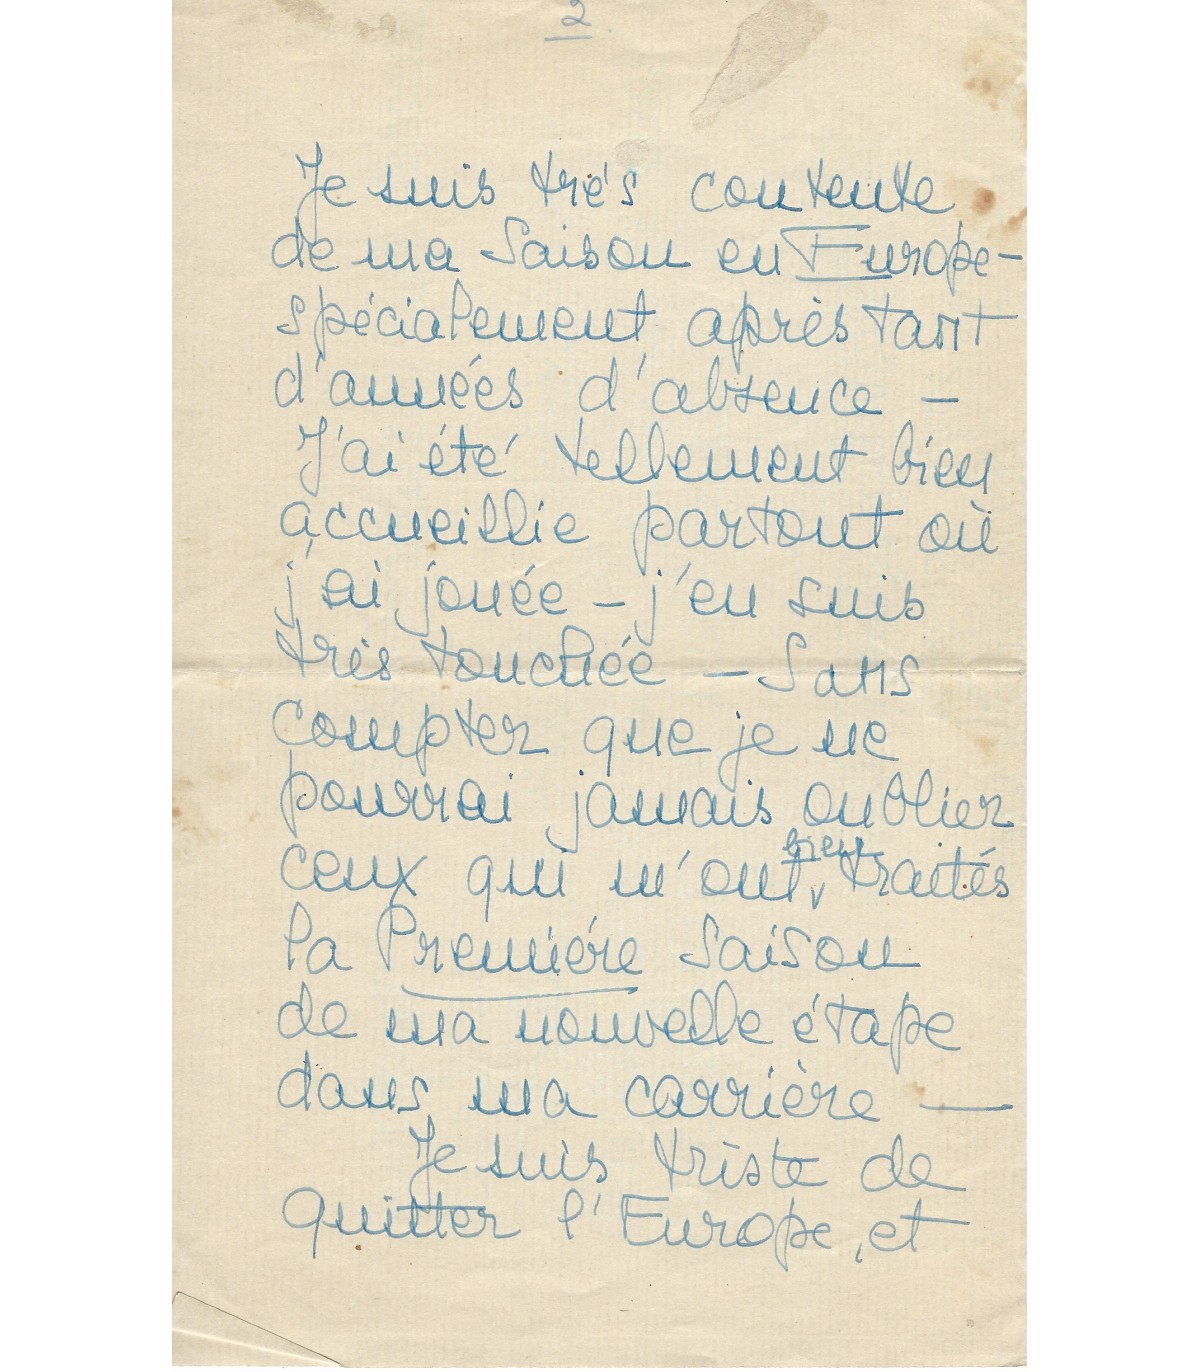 2
Je suis trés contente
de ma Saison en Europe –
spécialement après tant
d'années d'absence –
J'ai été tellement bien
accueillie partout où
j'ai jouée – j'en suis
très touchée – Sans
compter que je ne
pourrai jamais oublier
ceux qui m'ont bien traités
la Premiére saison
de ma nouvelle étape
dans ma carrière —
Je suis triste de
quitter l'Europe, et